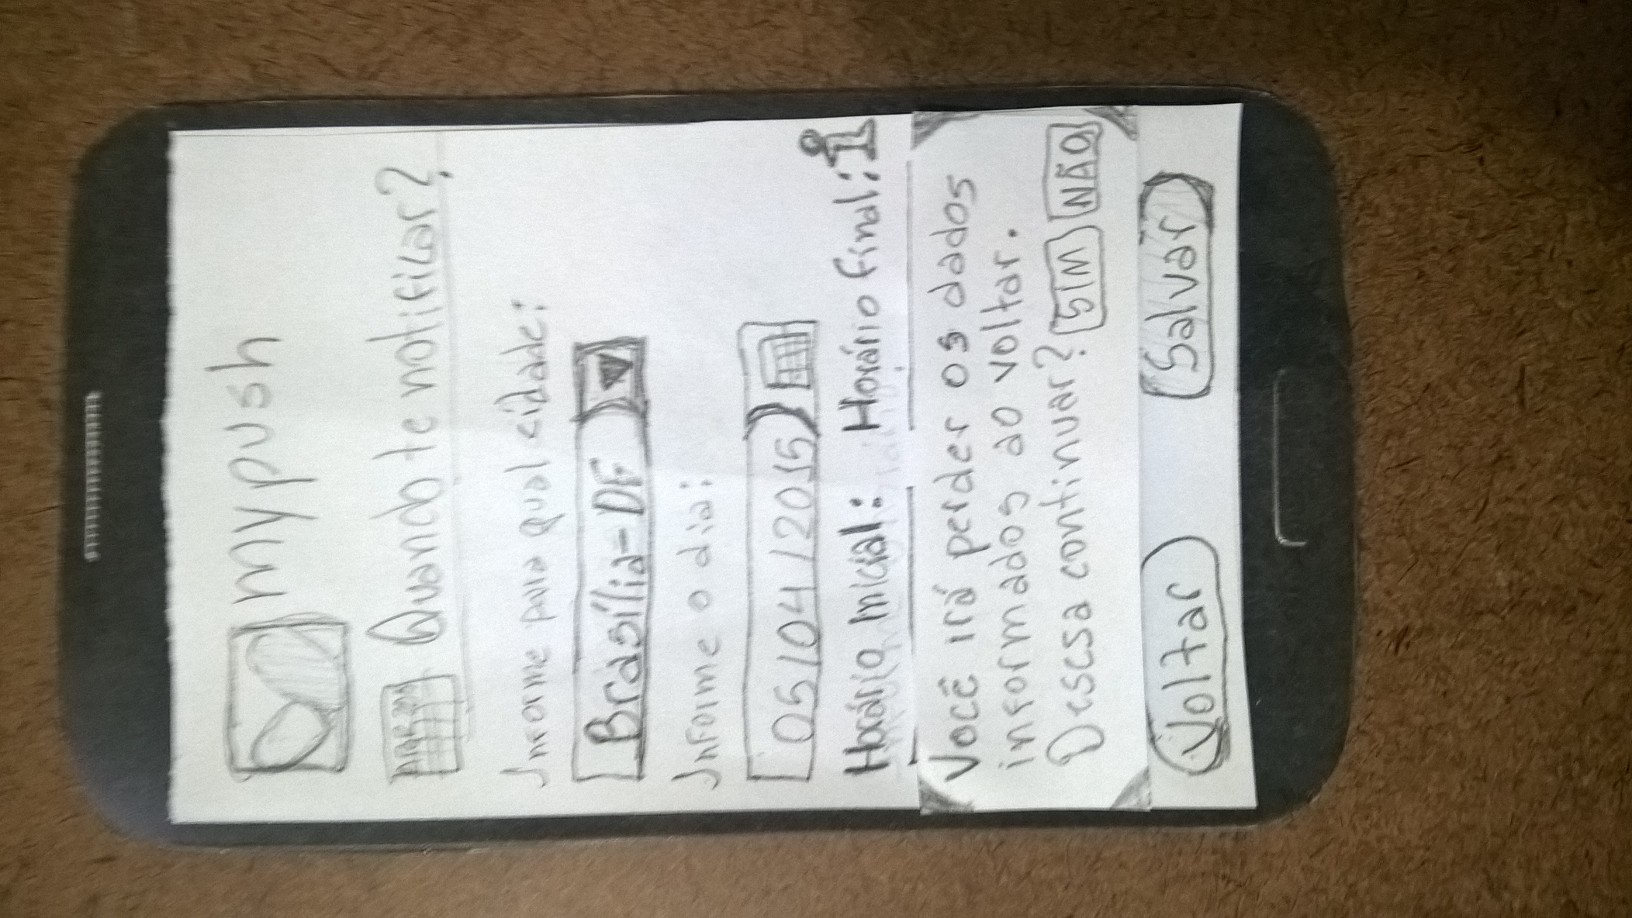 my push
Quando te notificar?
Informe para qual cidade:
Brasília-DF
Informe o dia:
05/04/2015
Horário Inicial: Horário final:
Você irá perder os dados
informados ao voltar.
Deseja continuar? SIM NÃO
Voltar Salvar